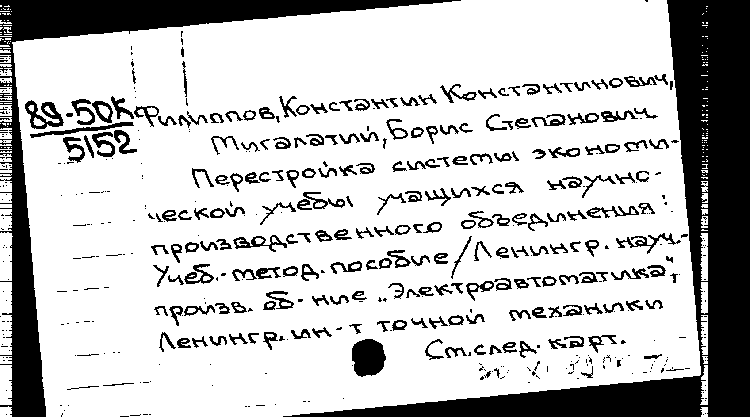 89-50К
5152
Филиппов, Константин Константинович,
Мигалатий, Борис Степанович.
Перестройка системы экономи-
ческой учебы учащихся научно-
производственного объединения:
Учеб.-метод. пособие / Ленингр. науч.-
произв. об-ние „Электроавтоматика“,
Ленингр. ин-т точной механики
См. след. карт.